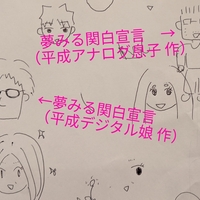 夢みる関白宣言　→
(平成アナログ息子 作)
←夢みる関白宣言
(平成デジタル娘 作)